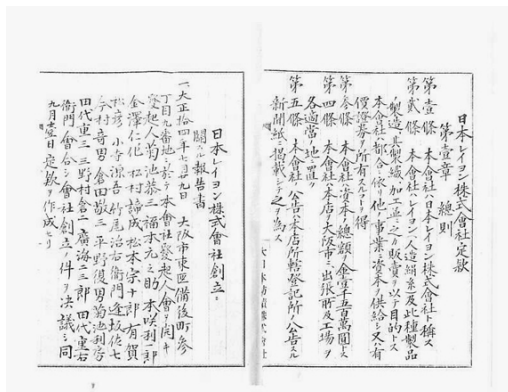 日本レイヨン株式會社定款
第壹章 總則
第壹條 本會社ハ日本レイヨン株式會社ト稱ス
第貳條 本會社ハレイヨン(人造絹糸)及此種製品
製造其製織加工並之カ販賣ヲ以テ目的トス
本會社ハ都合ニ依リ他ノ事業ニ資本ヲ供給シ又ハ有
價證券ヲ所有スルコトヲ得
第參條 本會社ノ資本ノ總額ヲ金壹千五百萬圓トス
第四條 本會社ハ本店ヲ大阪市ニ出張所及工場ヲ
各適當ノ地ニ置ク
第五條 本會社ノ公告ハ本店所轄登記所ノ公告スル
新聞紙ニ掲載シテ之ヲ為ス
大日本紡績株式會社
日本レイヨン株式會社創立ニ
關スル報告書
一、大正拾四年七月九日 大阪市東區備後町參
丁目九番地ニ於テ本會社發起人會ヲ開キ
發起人菊池恭三 福本元之助 木咲利一郎
金澤仁作 松村諦成 松本宗十郎 有賀
松彦 小寺源吾 竹尾治右衛門 逢坂佐七
今村奇男 倉田敬三 平野復男 菊池利
田代重三 三野村倉二 廣海二三郎 田代重右
衛門會合シ會社創立ノ件ヲ決議シ同
九月壹日定款ヲ作成セリ